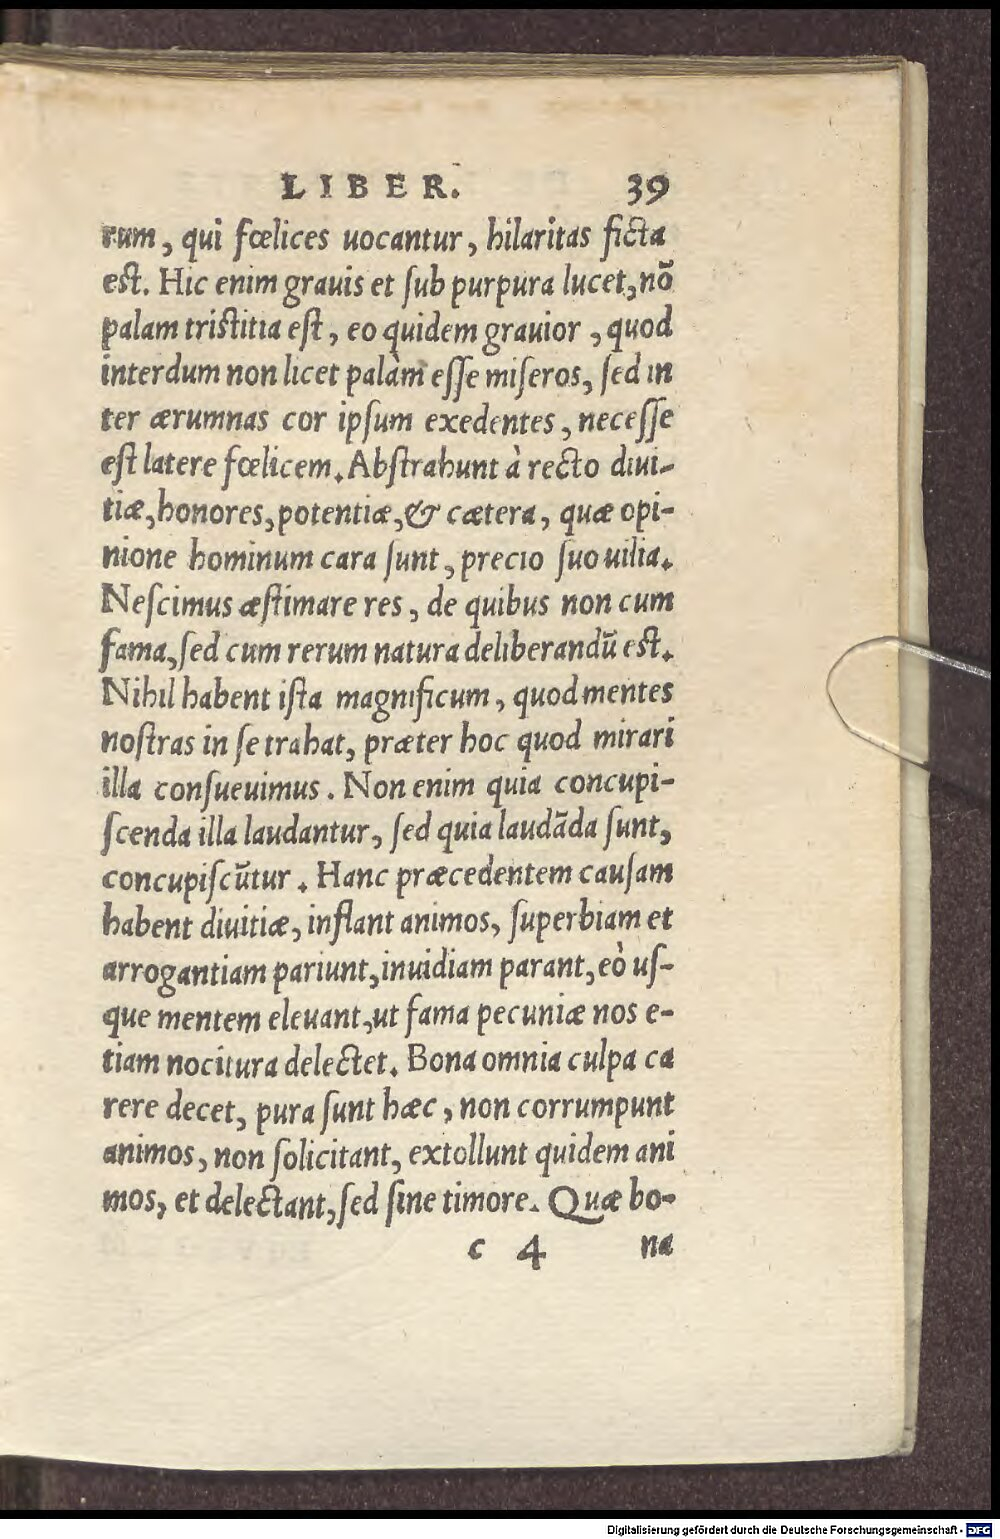 LIBER. 39
rum, qui fœlices uocantur, hilaritas ficta
est. Hic enim grauis et ſub purpura lucet, nõ
palam tristitia eſt, eo quidem grauior, quod
interdum non licet palàm eſſe miſeros, ſed in
ter ærumnas cor ipſum exedentes, neceſſe
eſt latere fœlicem. Abſtrahunt à recto diui-
tiæ, honores, potentiæ, & cætera, quæ opi-
nione hominum cara ſunt, precio ſuo uilia.
Neſcimus æſtimare res, de quibus non cum
fama, ſed cum rerum natura deliberandũ est.
Nihil habent iſta magnificum, quod mentes
noſtras in ſe trahat, præter hoc quod mirari
illa conſueuimus. Non enim quia concupi-
ſcenda illa laudantur, ſed quia laudãda ſunt,
concupiſcũtur. Hanc præcedentem cauſam
habent diuitiæ, inflant animos, ſuperbiam et
arrogantiam pariunt, inuidiam parant, eò uſ-
que mentem eleuant, ut fama pecuniæ nos e-
tiam nocitura delectet. Bona omnia culpa ca
rere decet, pura ſunt hæc, non corrumpunt
animos, non ſolicitant, extollunt quidem ani
mos, et delectant, ſed ſine timore. Quæ bo-
c 4 na
Digitalisierung gefördert durch die Deutsche Forschungsgemeinschaft - DFG